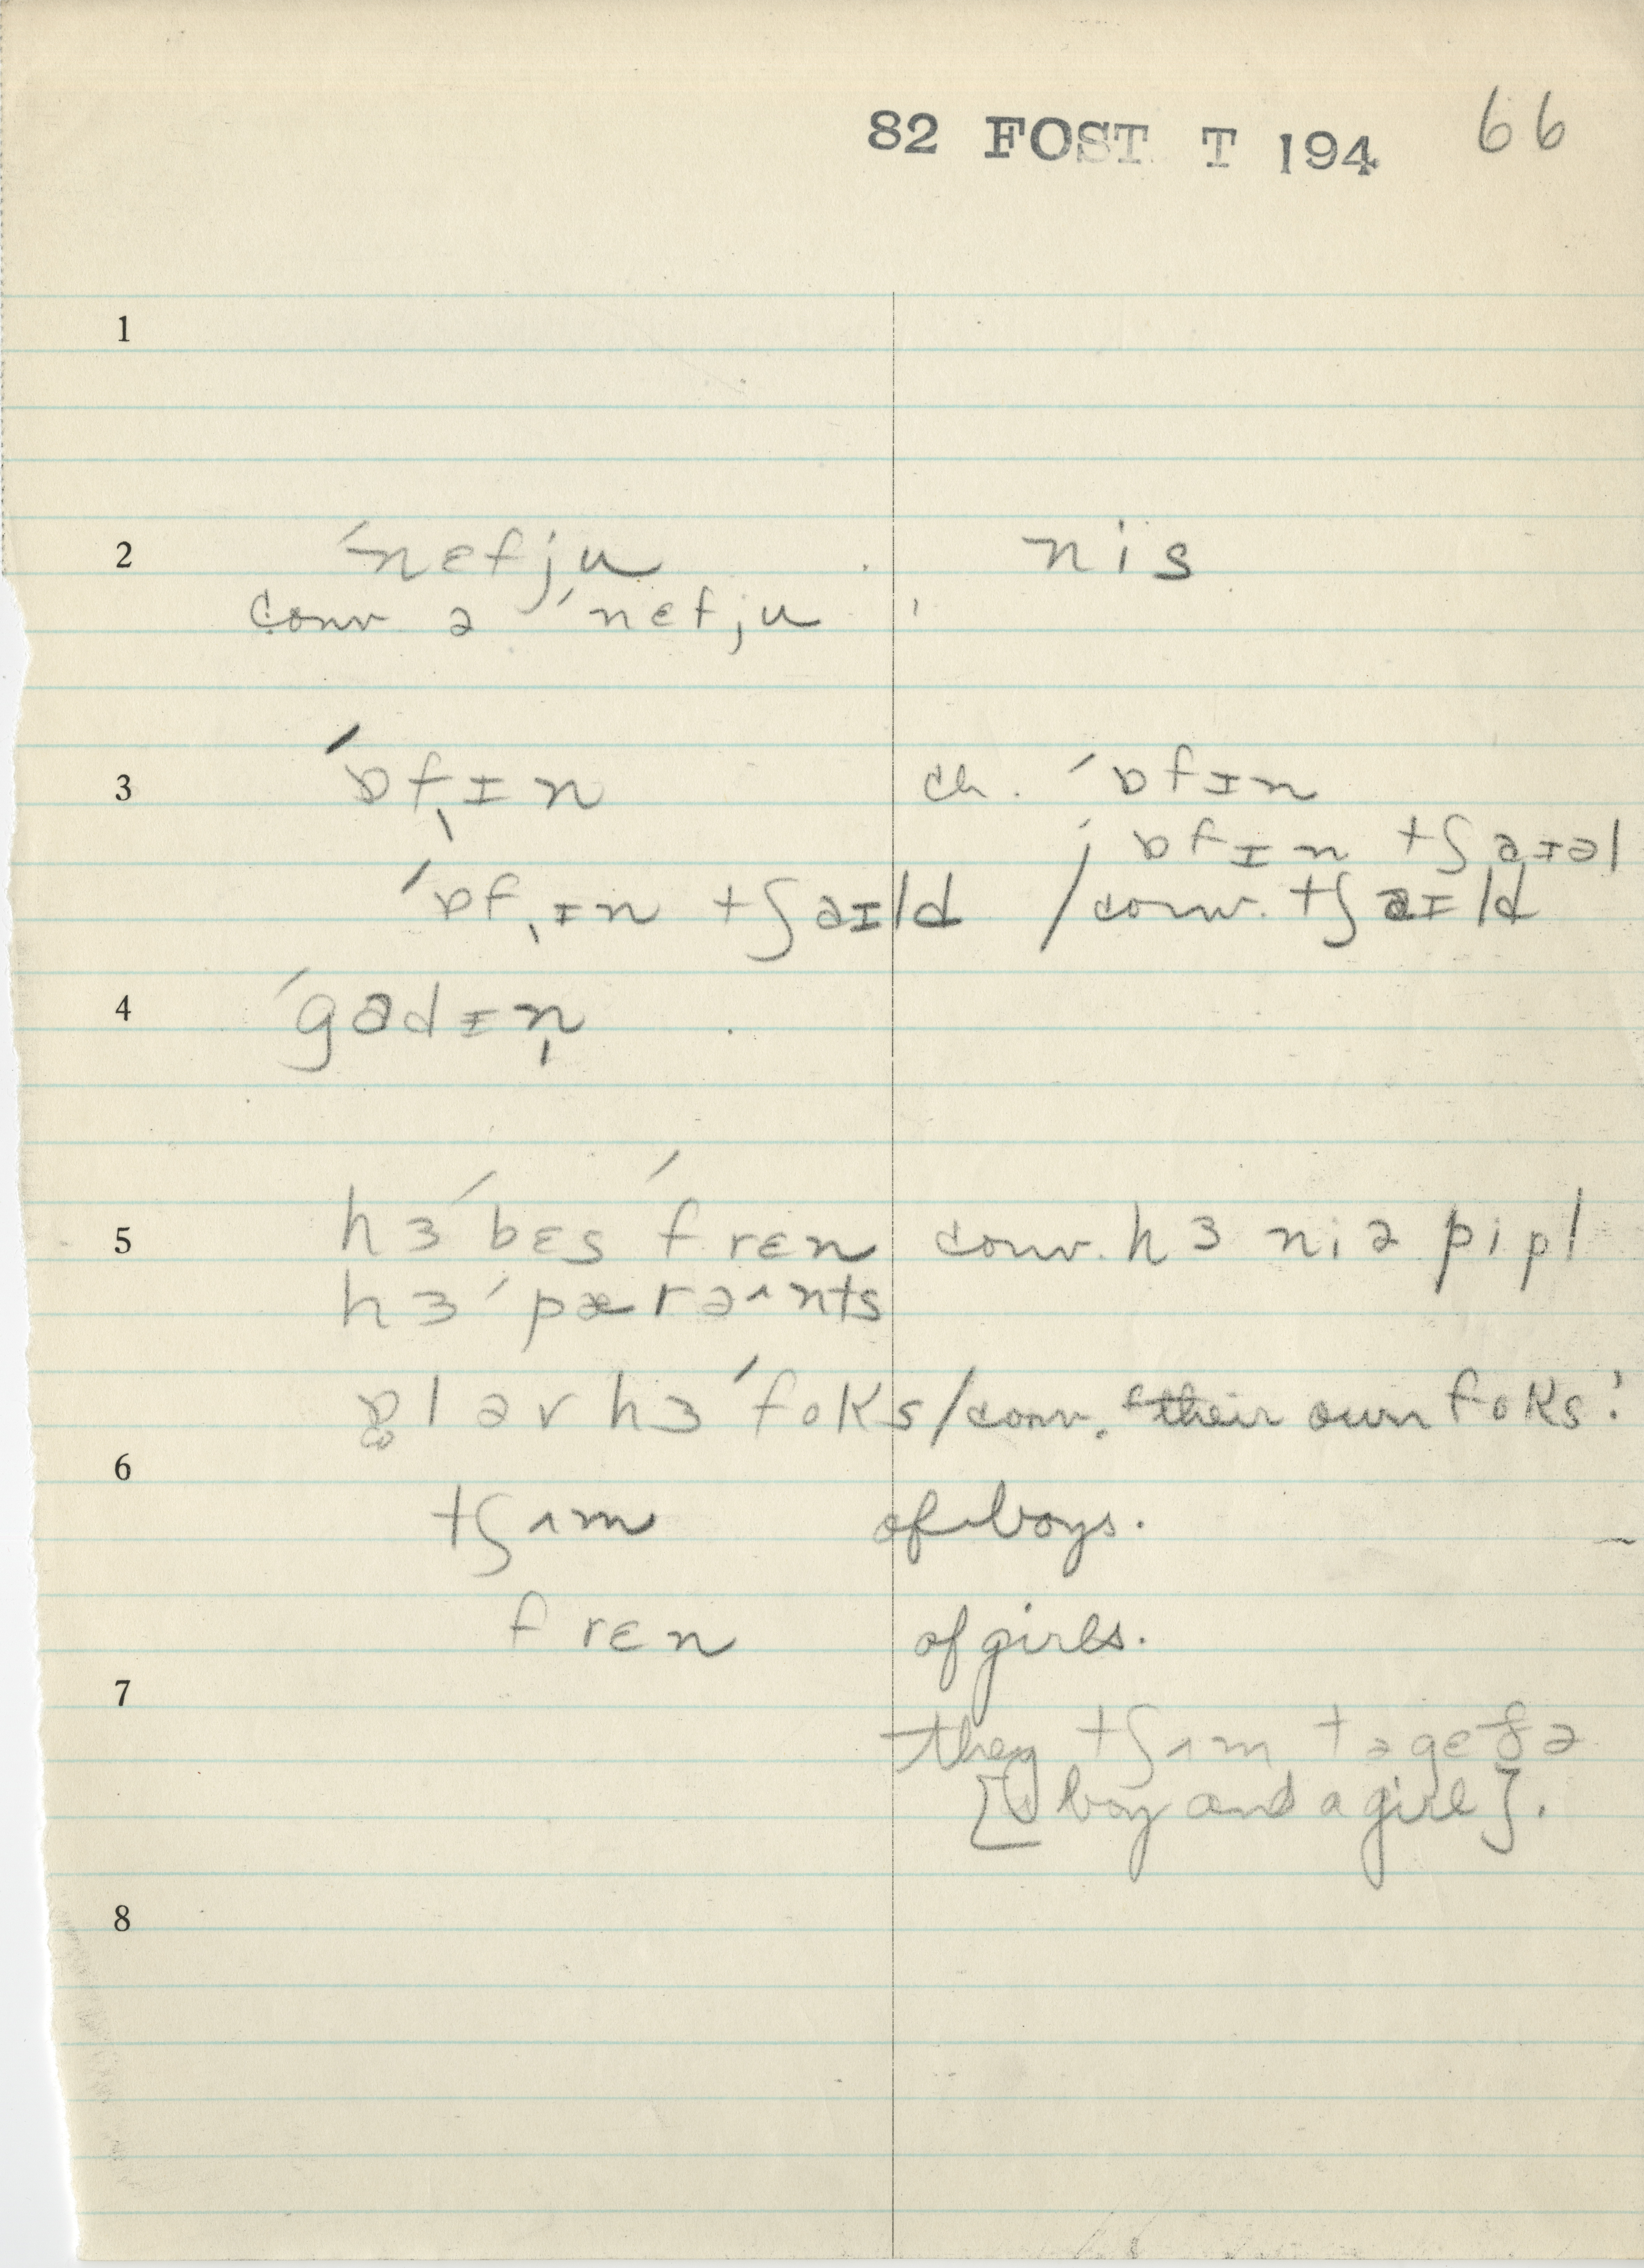 82 FOST T 194 66
1
2 ˊnɛfju nis
conv ə ˊnɛfju
3 ˊɒfˌɪn ch. ˊɒfɪn
; ɒfɪn tʃaɪəl
ˊɒfˌɪn tʃəɪld / conv. tʃəɪld
4 ˊgadɪn
5 hɜ ˊbɛs ˊfrɛn conv. hɜ niə pipl
hɜ ˊpærənts
ɒl əv hɜ ˊfoks / conv. 'their own foks'
6
tʃʌm of boys.
frɛn of girls.
7
they tʃʌm təgɛðə
boy and a girl].
8